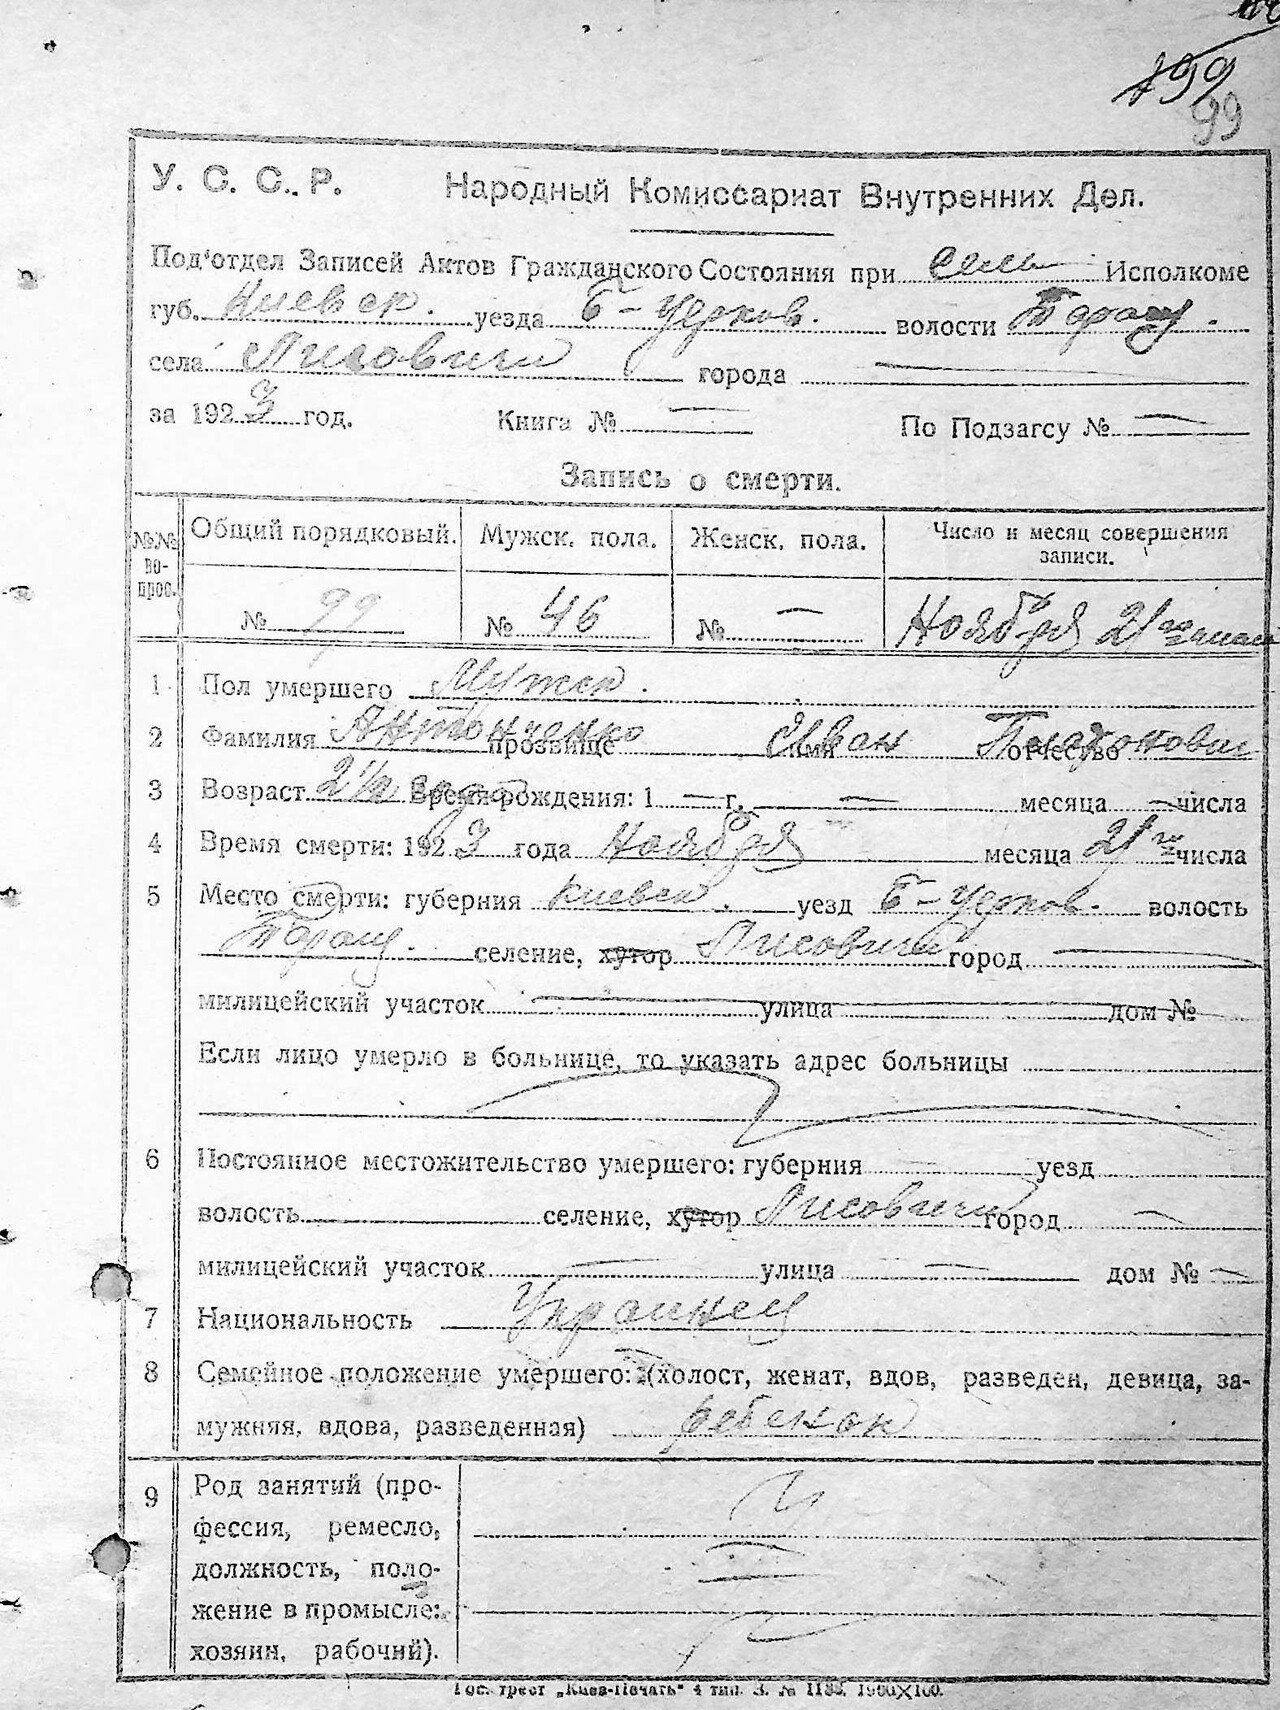 199
99
У. С. С. Р. Народный Комиссариат Внутренних Дел.
Под'отдел Записей Актов Гражданского Состояния при Сель Исполкоме
губ. Киевск. уезда Б-Церков. волости Таращ.
села Лисовичи города —
за 1923 год. Книга № — По Подзагсу № —
Запись о смерти.
№№ вопрос. Общий порядковый. Мужск. пола. Женск. пола. Число и месяц совершения записи.
№ 99 № 46 № — Ноября 21го числа
1 Пол умершего Мужск.
2 Фамилия Антонченко прозвище имя Иван отчество
3 Возраст 2 1/2 года Время рождения: 1 — г. — месяца — числа
4 Время смерти: 1923 года Ноября месяца 21го числа
5 Место смерти: губерния Киевск. уезд Б-Церков. волость
Таращ. селение, хутор Лисовичи город —
милицейский участок — улица — дом № —
Если лицо умерло в больнице, то указать адрес больницы
6 Постоянное местожительство умершего: губерния — уезд
волость селение, хутор Лисовичи город —
милицейский участок — улица — дом № —
7 Национальность Украинец
8 Семейное положение умершего: (холост, женат, вдов, разведен, девица, за-
мужняя, вдова, разведенная) ребенок
9 Род занятий (про-
фессия, ремесло,
должность, поло-
жение в промысле:
хозяин, рабочий).
Гос. трест „Киев-Печать" 4 тип. З. №